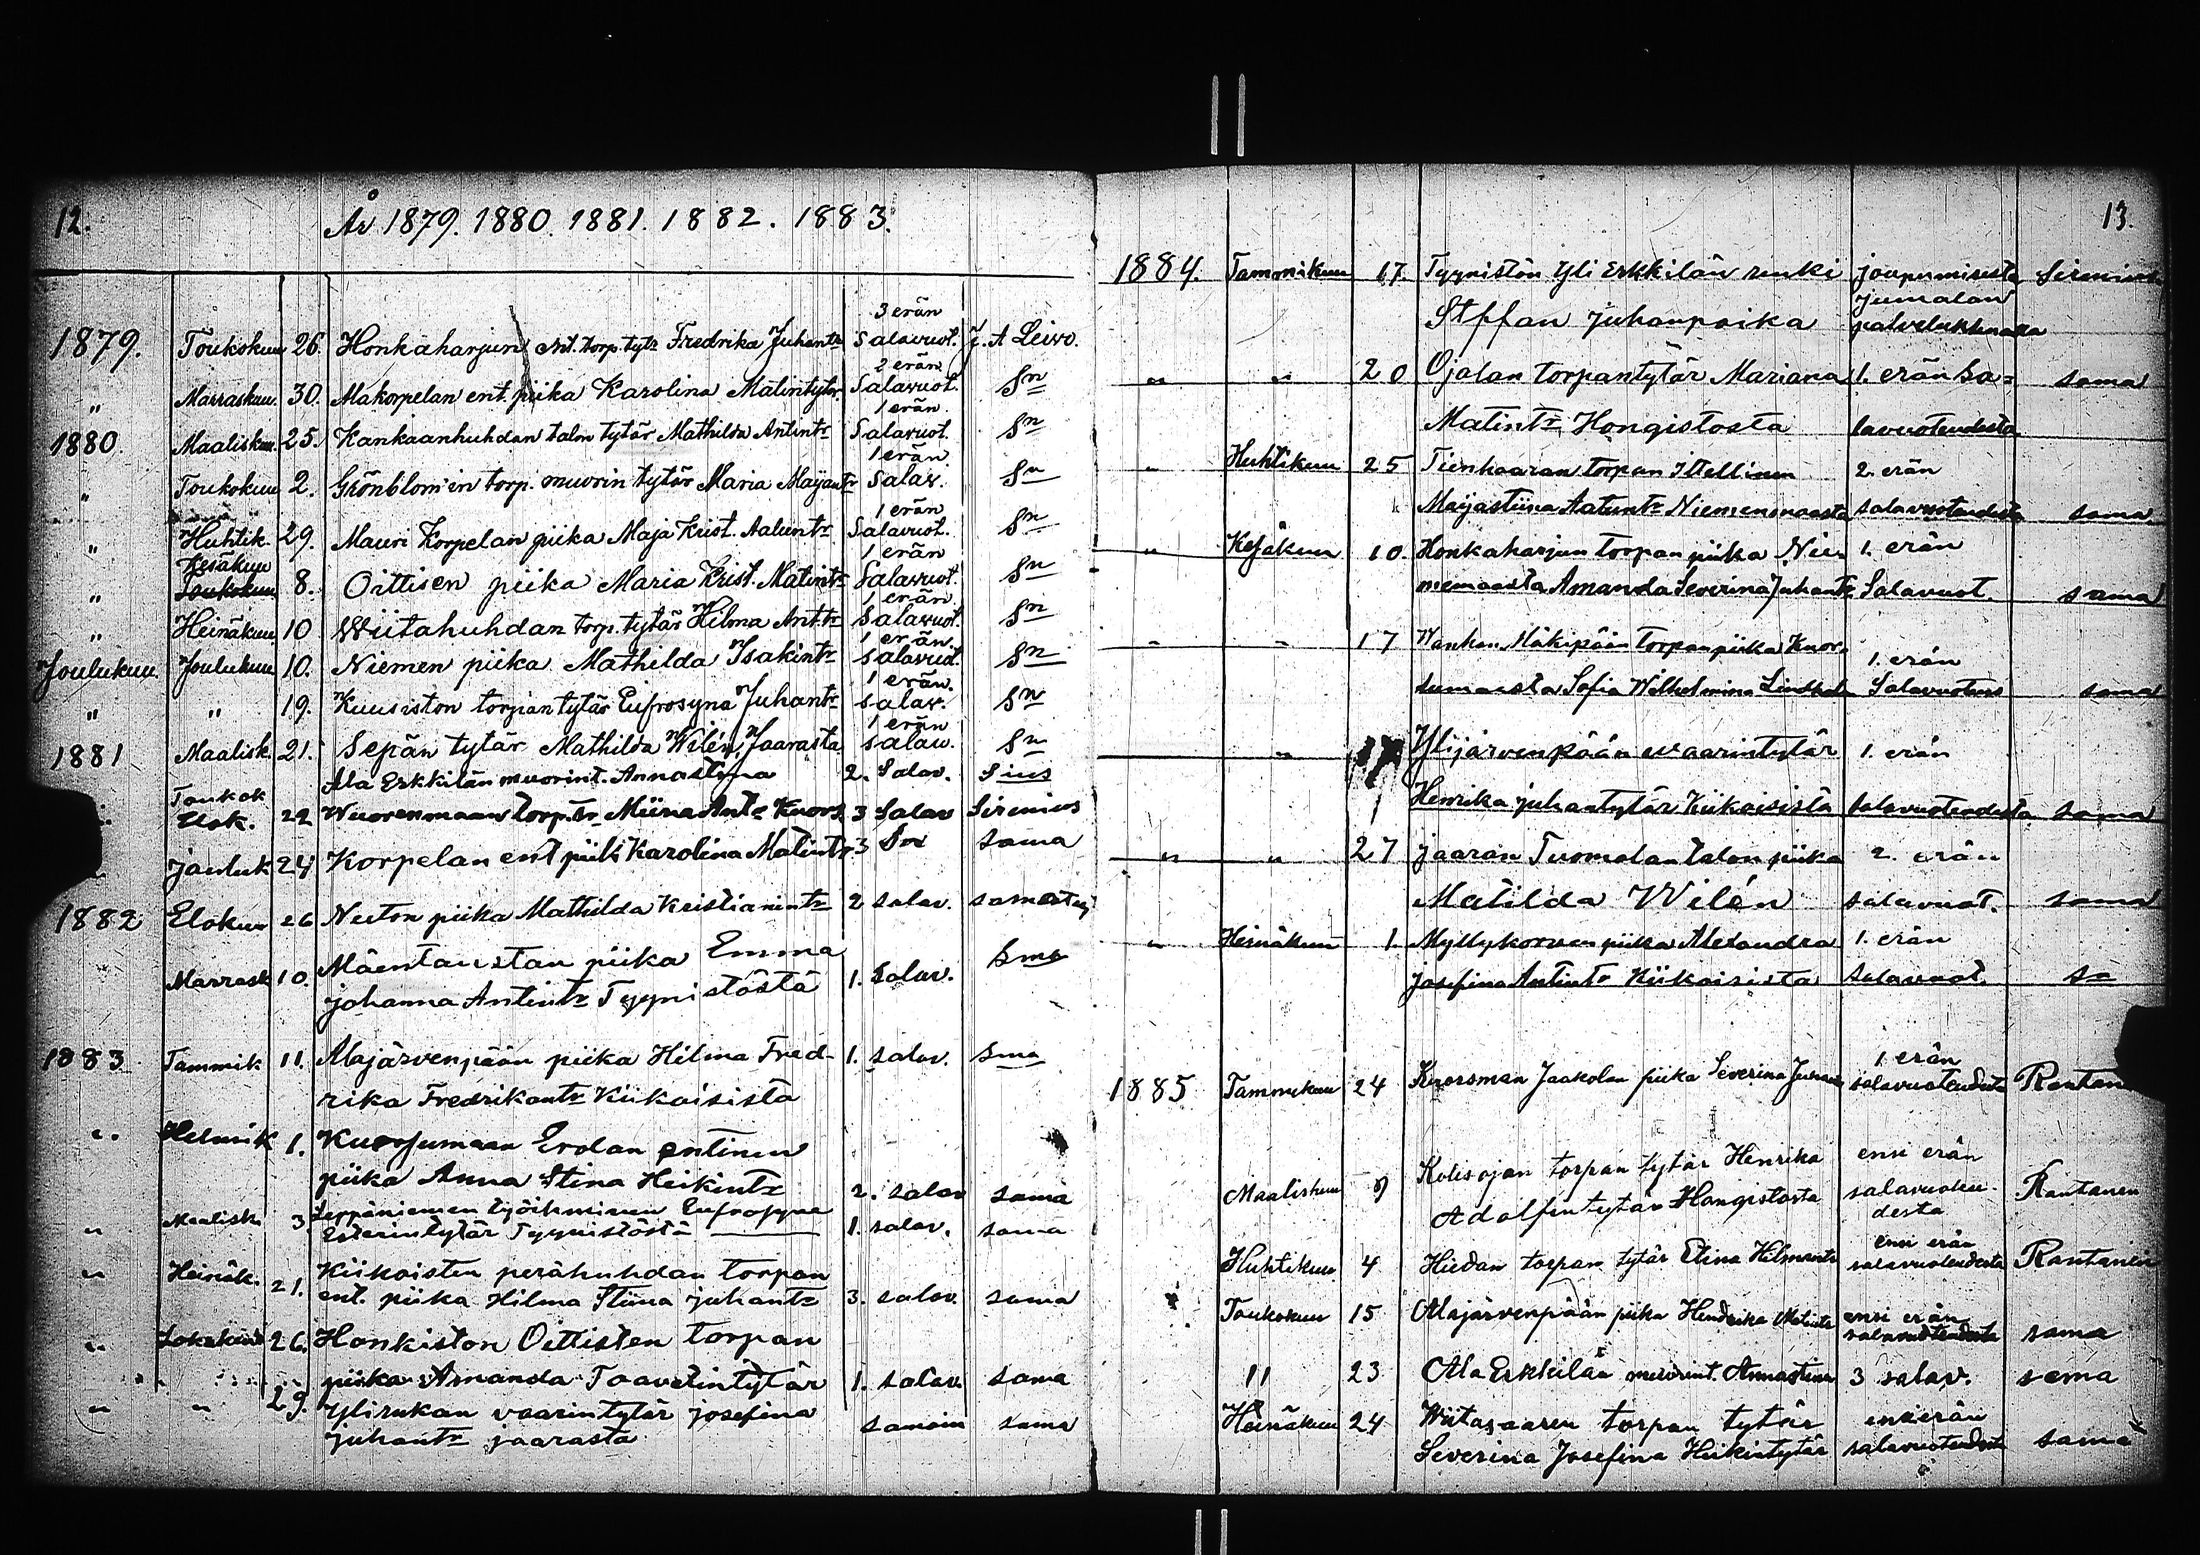 12.
År 1879. 1880. 1881. 1882. 1883.
1879. Toukokuu 26. Honkaharjun ent. torp. tytr Fredrika Juhantr 3 erän Salavuot. J. A Leivo.
" Marraskuu. 30. Alakorpelan ent. piika Karolina Matintytr 2 erän Salavuot. Sn
1880. Maalisku. 25. Kankaanhuhdan talon tytär Mathilda Antintr 1 erän. Salavuot. Sn
" Toukokuu 2. Grönblom'in torp. muorin tytär Maria Maijantr 1 erän Salav. Sn
" Huhtik. 29. Mauri Korpelan piika Maja Krist. Aatuntr 1 erän Salavuot. Sn
Kesäkuu
" Toukokuu 8. Oittisen piika Maria Krist. Matintr 1 erän Salavuot. Sn
" Heinäkuu 10 Wiitahuhdan torp. tytär Hilma Ant.tr 1 erän Salavuot. Sn
Joulukuu. Joulukuu 10. Niemen piika Mathilda Isakintr 1 erän. salavuot. Sn
" " 19. Kuusiston torpian tytär Eufrosyna Juhantr 1 erän. salav. Sn
1881 Maalisk. 21. Sepän tytär Mathilda Wilén, Jaarasta 1 erän salav. Sn
Toukok Ala Erkkilän muorint. Annastina 2. Salav. Sius
Elok. 22 Wuorenmaan torp. tr Miina Antr Knors 3 Salav Sirenius
Jouluk 24 Korpelan ent piik Karolina Matintr 3 Sa sama
1882 Elokuu 26 Neeton piika Mathilda Kristianintr 2 salav. sama
Marrask 10. Mäentaustan piika Emma
Johanna Antintr Tyynistöstä 1. Salav. Sma
1883 Tammik 11. Alajärvenpään piika Hilma Fred- 1. salav. Sma
rika Fredrikantr Kiikoisista
" Helmik 1. Kuorsumaan Erolan entinen
piika Anna Stina Heikintr 2. salav sama
" Maalisk. 3 Leppäniemen työihminen Eufrosyne
Esterintytär Tyynistöstä 1. salav. sama
" Heinäk. 21. Kiikoisten perähuhdan torpan
ent. piika Hilma Stiina juhantr 3. salav. sama
" Lokakuu 26. Honkiston Oittisten torpan
piika Amanda Taavetintytär 1. salav. sama
" " 29. Ylirukan vaarintytär josefina samoin sama
Juhantr jaarasta
13.
1884. Tammikuu 17. Tyyniston Yli Erkkilän renki juopumisesta Sirenius
Steffan Juhanpoika Jumalan palveluksessa
" " 20 Ojalan torpantytär Mariana 1. erän sa= sama
Matintr Hongistosta lavuoteudesta
" Huhtikuu 25 Tienhaaran torpan itellinen 2. erän
Maijastiina Aatuntr Niemenmaasta salavuoteudesta sama
" Kesäkuu 10. Honkaharjun torpan piika Nie- 1. erän
menmaasta Amanda Severina Juhantr Salavuot. sama
" " 17 Wanhan Mäkipään torpan piika Kuor- 1. erän
sumaasta Sofia Wilhelmina Lindhol Salavuoteus sama
" 17 Ylijärvenpään waarintytär 1. erän
Henrika juhantytär Kiikoisista salavuoteudesta sama
" " 27 jaaran Tuomolan talon piika 2. erän
Matilda Wilén salavuot. sama
" Heinäkuu 1. Myllykorven piika Alexandra 1. erän
Josefina Antintr Kiikoisista salavuot. sa
1885 Tammikuu 24 Kuorsman Jaakolan piika Severina Juhan 1 erän salavuoteudesta Rantan
Maaliskuu 9 Kolisojan torpan tytär Henrika ensi erän
Adolfin tytär Hongistosta salavuoteudesta Rantanen
Huhtikuu 4 Hiedan torpan tytär Elina Hilmantr ensi erän salavuoteudesta Rantanen
Toukokuu 15 Alajärvenpään piika Hendrika Matintr ensi erän salavuoteudesta sama
11 23 Ala Erkkilän muorint. Annastina 3 salav. sama
Heinäkuu 24 Wiitasaaren torpan tytär ensi erän
Severina Josefina Heikintytär salavuoteudesta sama